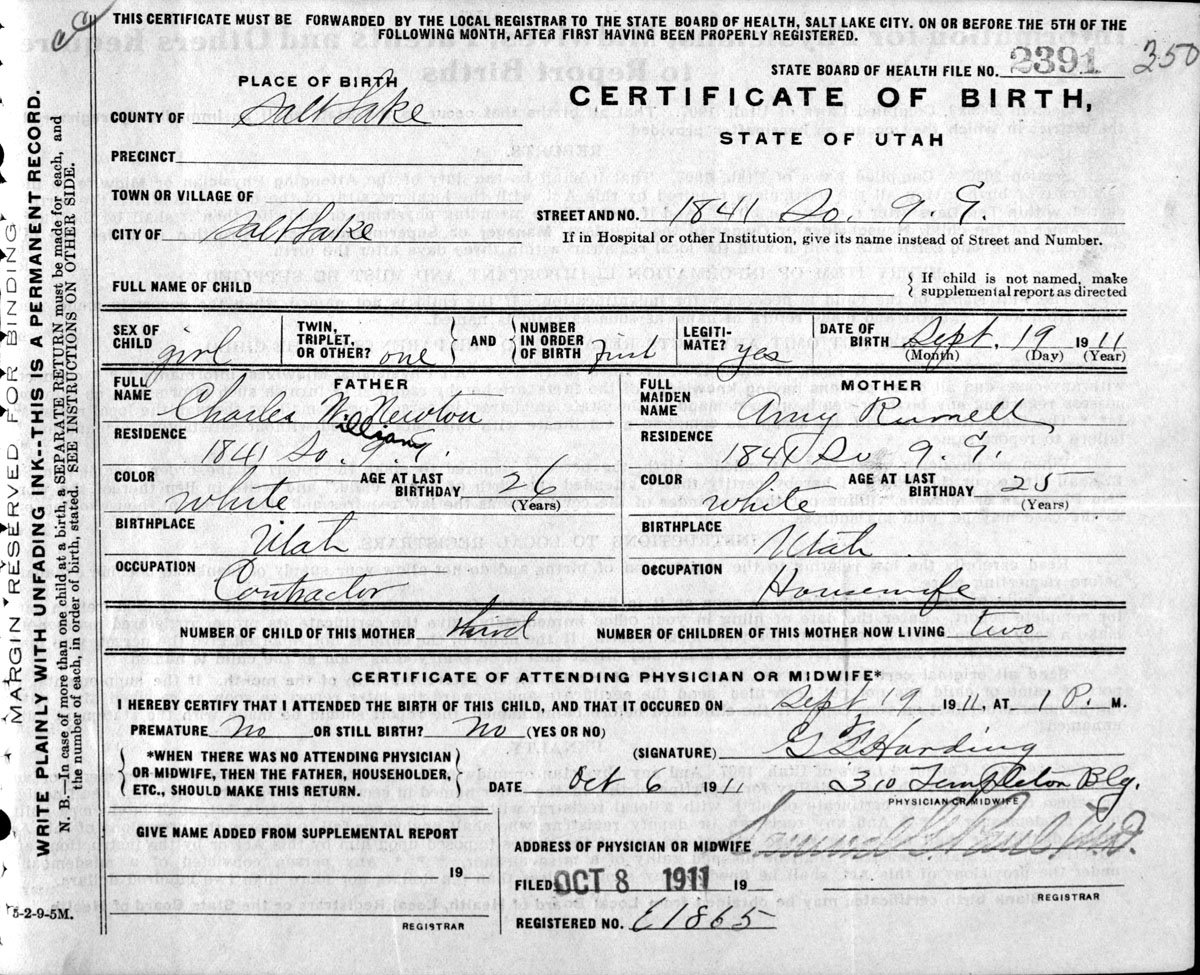 THIS CERTIFICATE MUST BE FORWARDED BY THE LOCAL REGISTRAR TO THE STATE BOARD OF HEALTH, SALT LAKE CITY. ON OR BEFORE THE 5TH OF THE
FOLLOWING MONTH, AFTER FIRST HAVING BEEN PROPERLY REGISTERED.
STATE BOARD OF HEALTH FILE NO. 2391 350
PLACE OF BIRTH
CERTIFICATE OF BIRTH,
COUNTY OF Salt Lake
STATE OF UTAH
PRECINCT
TOWN OR VILLAGE OF
STREET AND NO. 1841 So. 9. E.
CITY OF Salt Lake
If in Hospital or other Institution, give its name instead of Street and Number.
FULL NAME OF CHILD
If child is not named, make
supplemental report as directed
SEX OF CHILD girl
TWIN, TRIPLET, OR OTHER? one
AND
NUMBER IN ORDER OF BIRTH first
LEGITI-MATE? yes
DATE OF BIRTH Sept. 19 1911
(Month) (Day) (Year)
FATHER
FULL NAME Charles W. Newton
William
RESIDENCE
1841 So. 9. E.
COLOR white
AGE AT LAST BIRTHDAY 26
(Years)
BIRTHPLACE
Utah
OCCUPATION
Contractor
MOTHER
FULL MAIDEN NAME Amy
RESIDENCE
1841 So. 9. E.
COLOR white
AGE AT LAST BIRTHDAY 25
(Years)
BIRTHPLACE
Utah
OCCUPATION
Housewife
NUMBER OF CHILD OF THIS MOTHER third
NUMBER OF CHILDREN OF THIS MOTHER NOW LIVING two
CERTIFICATE OF ATTENDING PHYSICIAN OR MIDWIFE*
I HEREBY CERTIFY THAT I ATTENDED THE BIRTH OF THIS CHILD, AND THAT IT OCCURED ON Sept. 19 1911, AT 1 P. M.
PREMATURE No OR STILL BIRTH? No (YES OR NO)
*WHEN THERE WAS NO ATTENDING PHYSICIAN
OR MIDWIFE, THEN THE FATHER, HOUSEHOLDER,
ETC., SHOULD MAKE THIS RETURN.
(SIGNATURE) G F Harding
DATE Oct 6 1911 310 Templeton Blg.
PHYSICIAN OR MIDWIFE
GIVE NAME ADDED FROM SUPPLEMENTAL REPORT
19
REGISTRAR
ADDRESS OF PHYSICIAN OR MIDWIFE
FILED OCT 8 1911 19
REGISTRAR
REGISTERED NO. E1865
5-2-9-5M.
MARGIN RESERVED FOR BINDING
WRITE PLAINLY WITH UNFADING INK--THIS IS A PERMANENT RECORD.
N. B.—In case of more than one child at a birth, a SEPARATE RETURN must be made for each, and
the number of each, in order of birth, stated. SEE INSTRUCTIONS ON OTHER SIDE.